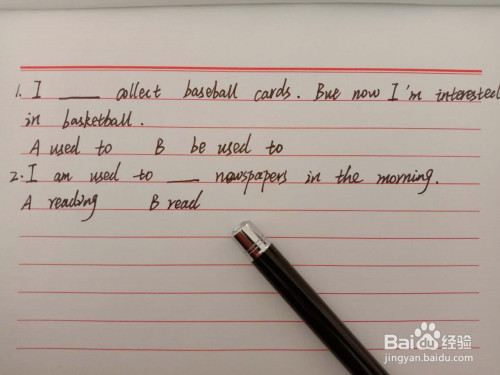 1. I ____ collect baseball cards. But now I'm interested
in basketball.
A used to B be used to
2. I am used to ___ newspapers in the morning.
A reading B read
Baidu 经验
jingyan.baidu.com